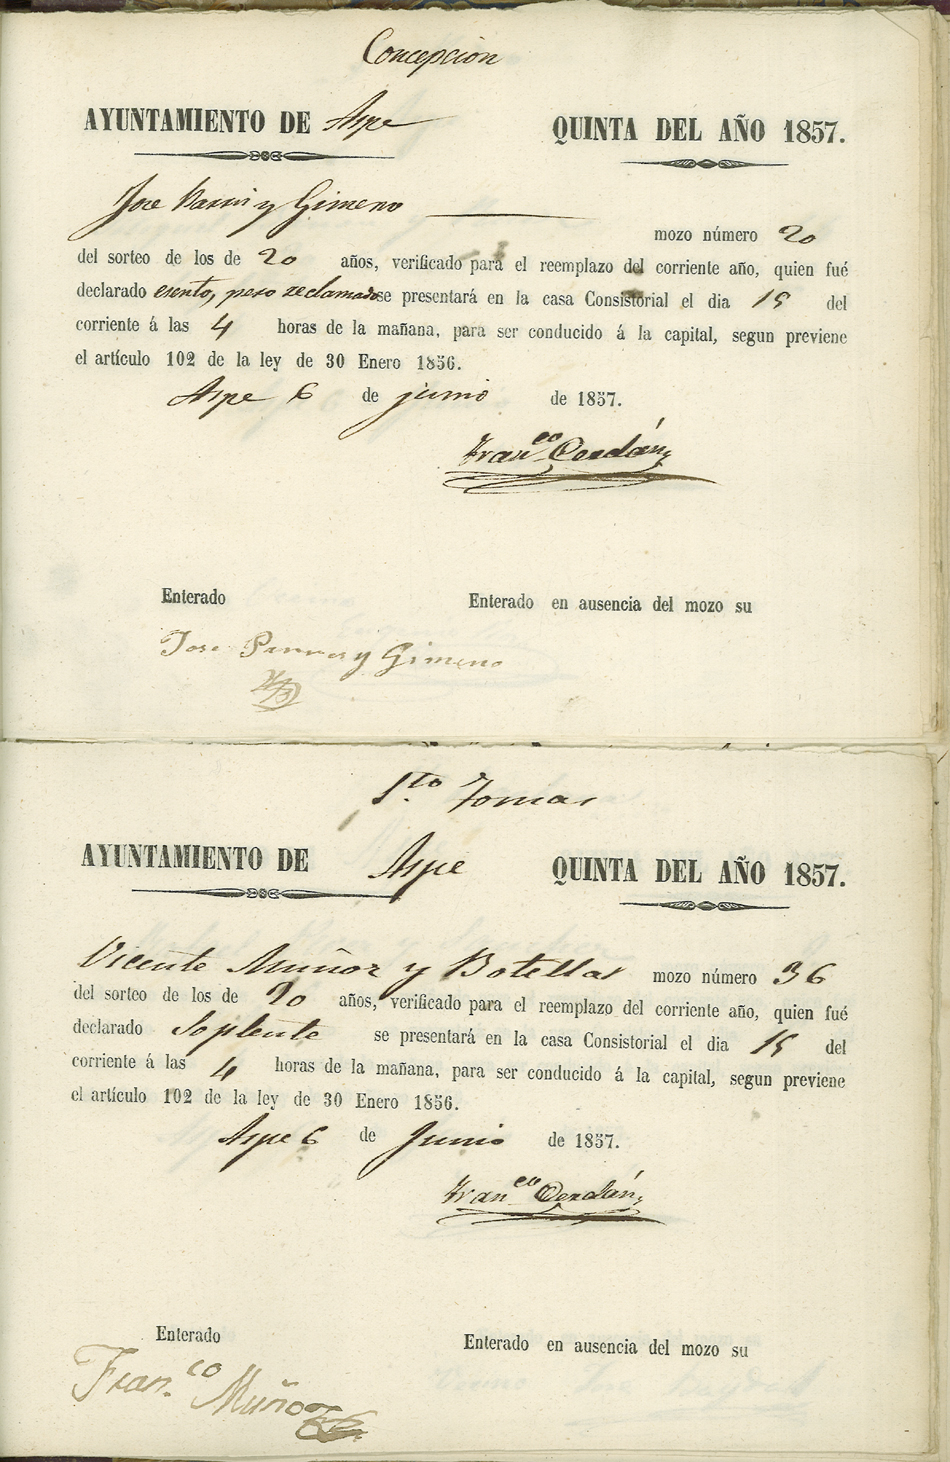 Concepcion
AYUNTAMIENTO DE Aspe QUINTA DEL AÑO 1857.
Jose y Gimeno
mozo número 20
del sorteo de los de 20 años, verificado para el reemplazo del corriente año, quien fué
declarado esento, pero reclamado se presentará en la casa Consistorial el dia 15 del
corriente á las 4 horas de la mañana, para ser conducido á la capital, segun previene
el artículo 102 de la ley de 30 Enero 1856.
Aspe 6 de junio de 1857.
Fran.co Cerdán
Enterado Enterado en ausencia del mozo su
Jose y Gimeno
S.to Tomas
AYUNTAMIENTO DE Aspe QUINTA DEL AÑO 1857.
Vicente Muñoz y Botellas mozo número 36
del sorteo de los de 20 años, verificado para el reemplazo del corriente año, quien fué
declarado Soplente se presentará en la casa Consistorial el dia 15 del
corriente á las 4 horas de la mañana, para ser conducido á la capital, segun previene
el artículo 102 de la ley de 30 Enero 1856.
Aspe 6 de Junio de 1857.
Fran.co Cerdán
Enterado Enterado en ausencia del mozo su
Fran.co Muñoz